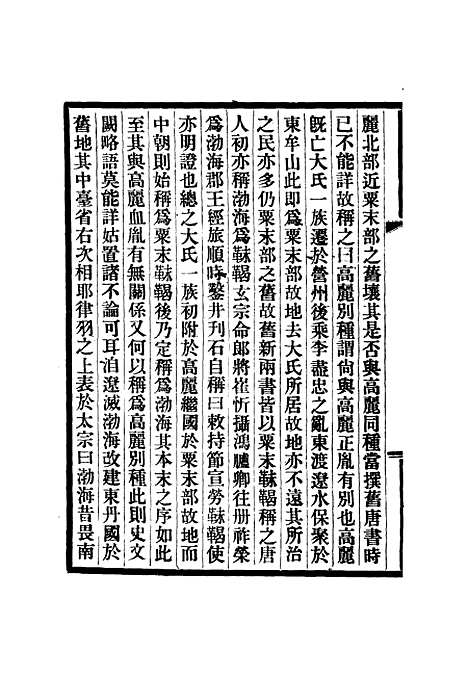 麗北部近粟末部之舊壤其是否與高麗同種當撰舊唐書時
已不能詳故稱之曰高麗別種謂尙與高麗正胤有別也高麗
旣亡大氏一族遷於營州後乘李盡忠之亂東渡遼水保聚於
東牟山此卽爲粟末部故地去大氏所居故地亦不遠其所治
之民亦多仍粟末部之舊故舊新兩書皆以粟末靺鞨稱之唐
人初亦稱渤海爲靺鞨玄宗命郎將崔忻攝鴻臚卿往册祚榮
爲渤海郡王經旅順時鑿井刊石自稱曰敕持節宣勞靺鞨使
亦明證也總之大氏一族初附於高麗繼國於粟末部故地而
中朝則始稱爲粟末靺鞨後乃定稱爲渤海其本末之序如此
至其與高麗血胤有無關係又何以稱爲高麗別種此則史文
闕略語莫能詳姑置諸不論可耳洎遼滅渤海改建東丹國於
舊地其中臺省右次相耶律羽之上表於太宗曰渤海昔畏南